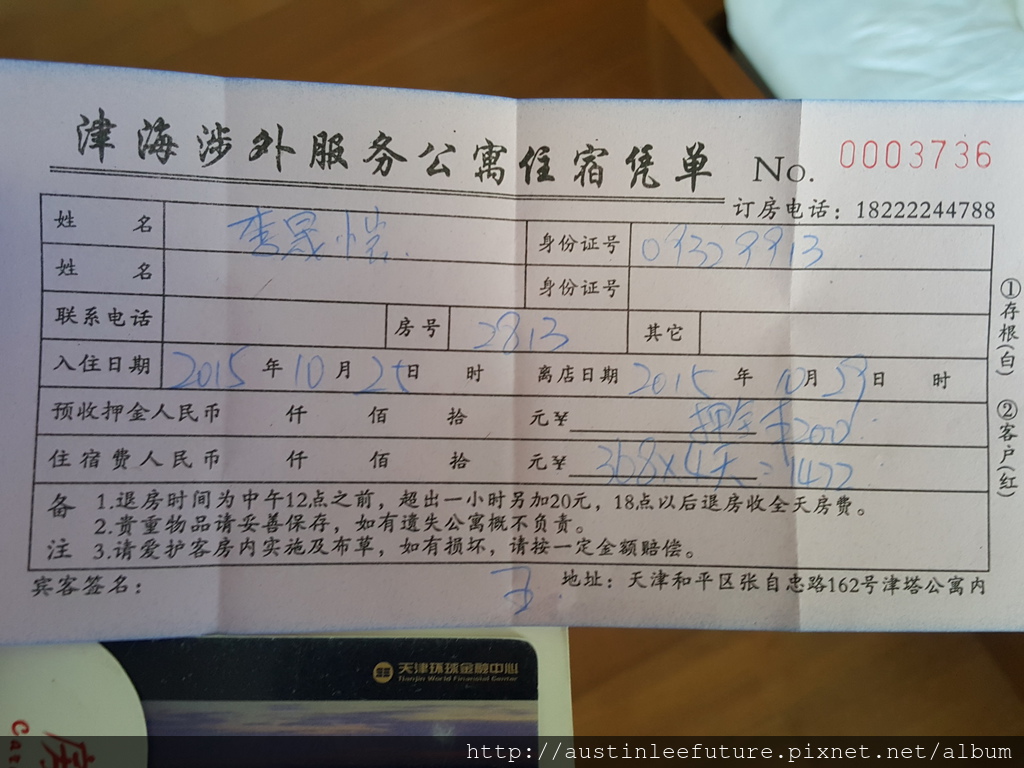 津海涉外服务公寓住宿凭单 No. 0003736
订房电话：18222244788
姓 名 李晟恺 身份证号 09329913
姓 名 身份证号
联系电话 房号 2813 其它
入住日期 2015 年 10 月 25 日 时 离店日期 2015 年 10 月 29 日 时
预收押金人民币 仟 佰 拾 元¥ 押金 200
住宿费人民币 仟 佰 拾 元¥ 368×4天=1472
备注 1.退房时间为中午12点之前，超出一小时另加20元，18点以后退房收全天房费。
2.贵重物品请妥善保存，如有遗失公寓概不负责。
3.请爱护客房内实施及布草，如有损坏，请按一定金额赔偿。
宾客签名： 王 地址：天津和平区张自忠路162号津塔公寓内
①存根(白) ②客户(红)
天津环球金融中心
Tianjin World Financial Center
http://austinleefuture.pixnet.net/album